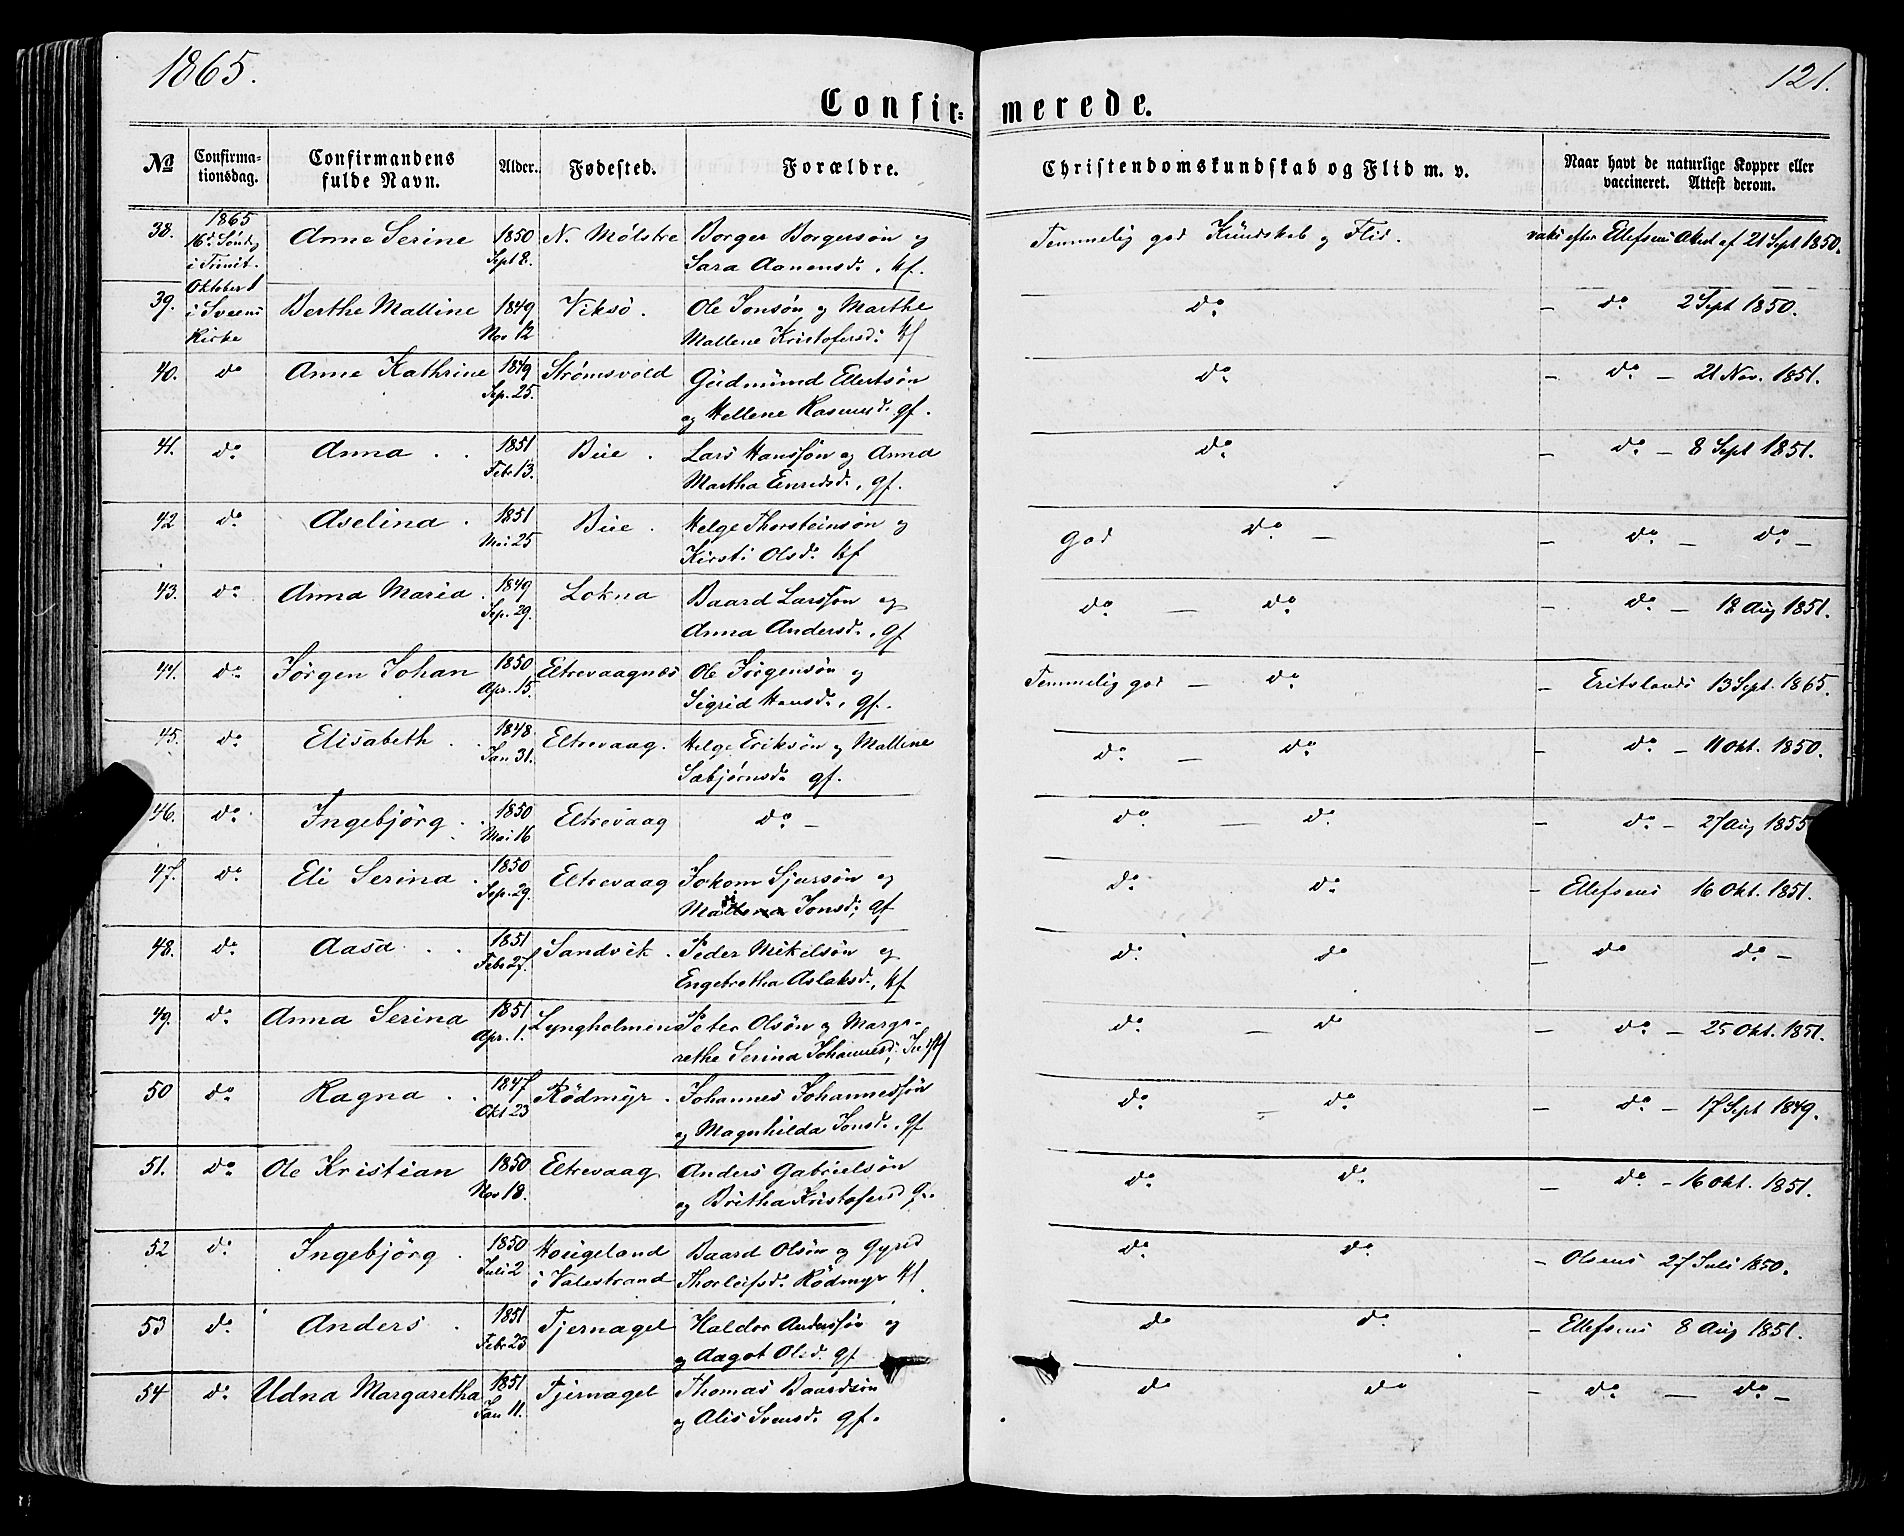 1865.
121.
Confir- merede.
No
Confirma-
tionsdag.
Confirmandens
fulde Navn.
Alder.
Fødested.
Forældre.
Christendomskundskab og Flid m. v.
Naar havt de naturlige Kopper eller
vaccineret. Attest derom.
38. 1865 Anne Serine 1850 N. Mølstre Borger Borgersøn og Temmelig god Kündskab og Flid. vaks efter Ellefsens Attest af 21 Sept 1850.
16d. Sönd. Sept 8. Sara Aanensd., kf.
i Trinit.
Oktober 1
39. i Sveens Berthe Malline 1849 Viksö. Ole Jonsøn og Marthe do - do 2 Sept 1850.
Kirke Nov 12 Mallene Kristofersd: kf
40. do Anne Kathrine 1849 Strömsvold Güdmünd Ellertsön do - do - 21 Nov. 1851.
Sep. 25. og Hellene Rasmusd. gf.
41. do Anna 1851 Büe. Lars Hansson og Anna do - do - 8 Sept 1851.
Feb 13. Martha Enersd., gf.
42 do Aselina. 1851 Büe. Helge Thorsteinsön og god do - - do - do -
Mai 25 Kirsti Olsd: kf
43. do Anna Maria. 1849 Lokna Baard Larsson og do - do - do - 18 Aug 1851.
Sep. 29. Anna Andersd., gf
44. do Jörgen Johan 1850 Eltrevaagnes Ole Jörgensön og Temmelig god - do - Eritslands 13 Sept. 1865.
Apr. 15. Sigrid Hansd., gf.
45. do Elisabeth. 1848. Eltrevaag. Helge Eriksön og Malline do - do - do - 11 Okt. 1850.
Jan 31. Sabjörnsd. gf.
46. do Ingebjörg. 1850 Eltrevaag do - do - do - do - 27 Aug 1855
Mai 16
47. do Eli Serina. 1850 Eltrevaag Jokom Sjursön og do do - Ellefsens 16 Okt. 1851.
Sep. 29. Jonsd; gf
48. do Aasa 1851 Sandvik. Peder Mikelsön og do do - do do -
Feb 27. Engebretha Aslaksd., kf
49. do Anna Serina 1851 Lyngholmen Peter Olsön og Marga- do - do - do - 25 Okt. 1851.
Apr. 1. rethe Serina Johannesd;
50 do Ragna 1847 Rödmyr. Johannes Johannessön do - do - do - 17 Sept 1849.
Okt 23 og Magnhilda Jonsd., gf
51. do Ole Kristian 1850 Eltrevaag Anders Gabrielsön do do - do - 16 Okt. 1851.
Nov 18. og Britha Kristofersd g.
52 do Ingebjörg. 1850 Hoügeland Baard Olsön og Gyrid do do - Olsens 27 Juli 1850.
Juli 2 i Valestrand Thorleifsd. Rödmyr kf.
53 do Anders. 1851 Tjernagel Haldor Anderssön og do do - Ellefsens 8 Aug 1851.
Feb 23 og Aagot Olsd. gf
54 do Udna Margaretha 1851 Tjernagel Thomas Baardsön do do - do - do -
Jan 11. og Alis Svensd. gf.